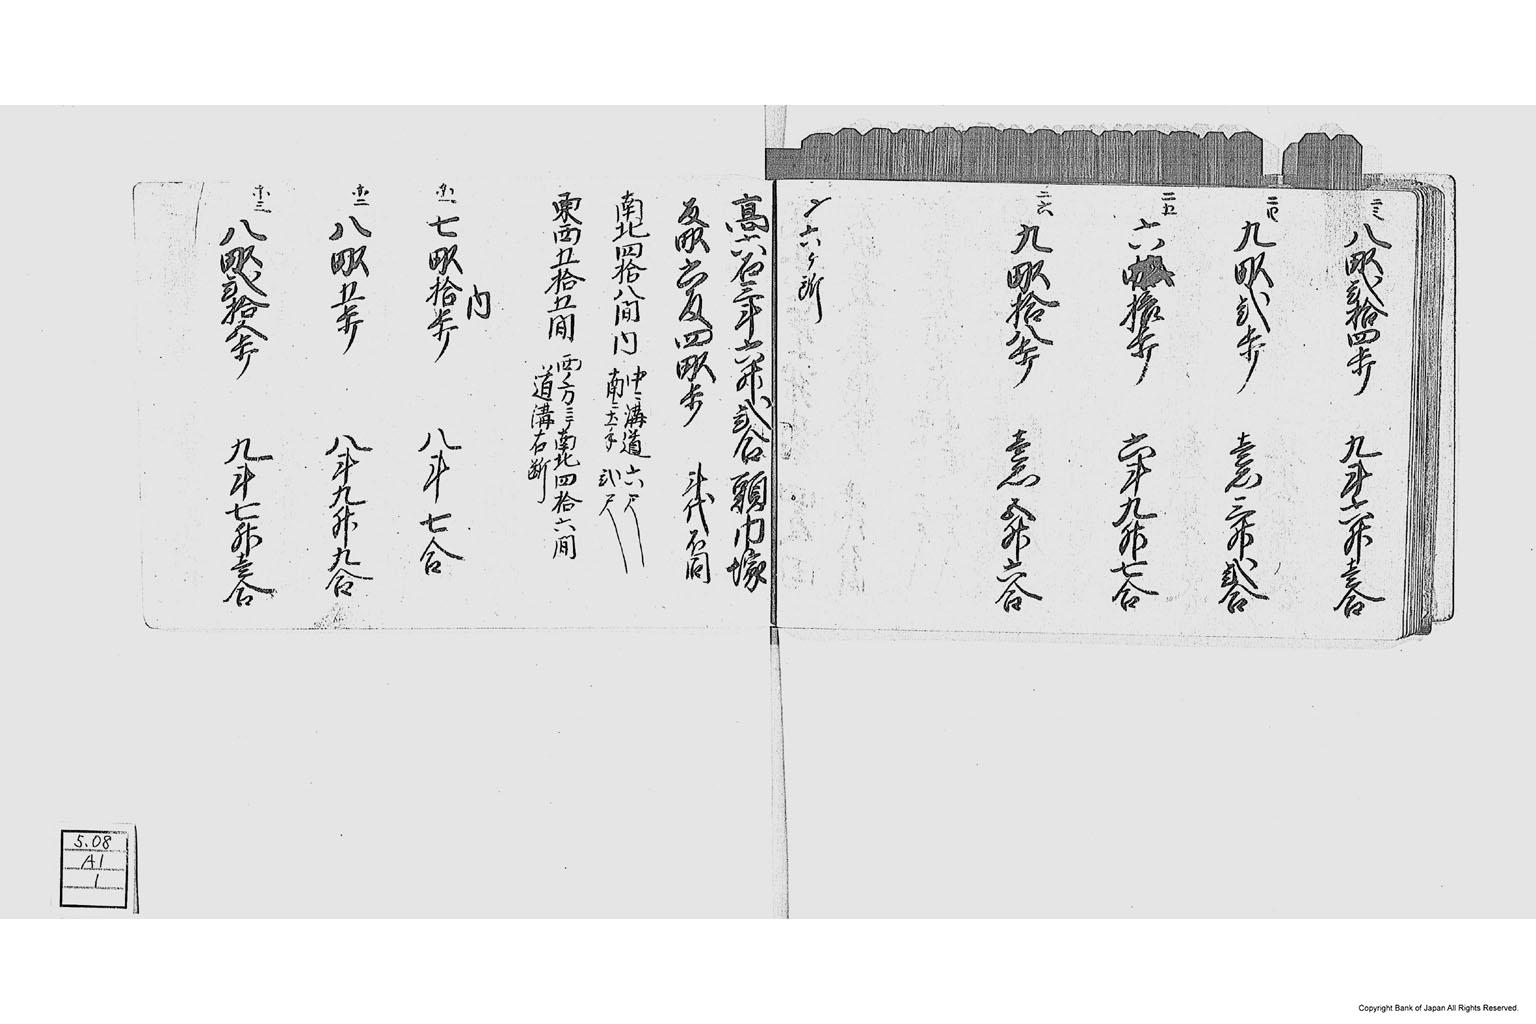 二ノ三
八畝弐拾四歩　九斗六升壱合
二ノ四
九畝弐歩　壱石三升弐合
二ノ五
六畝拾歩　六斗九升七合
二ノ六
九畝拾八歩　壱石五升六合
〆六ヶ所
高六石三斗六升弐合　頭巾塚
反畝六反四畝歩　斗代石同
南北四拾八間内
中ニ溝道六尺
弐尺
東西五拾五間
西ノ方ニテ南北四拾六間
道溝右断
内
七畝拾歩　八斗七合
八畝五歩　八斗九升九合
八畝弐拾八歩　九斗七升壱合
5.08
A1
1
Copyright Bank of Japan All Rights Reserved.